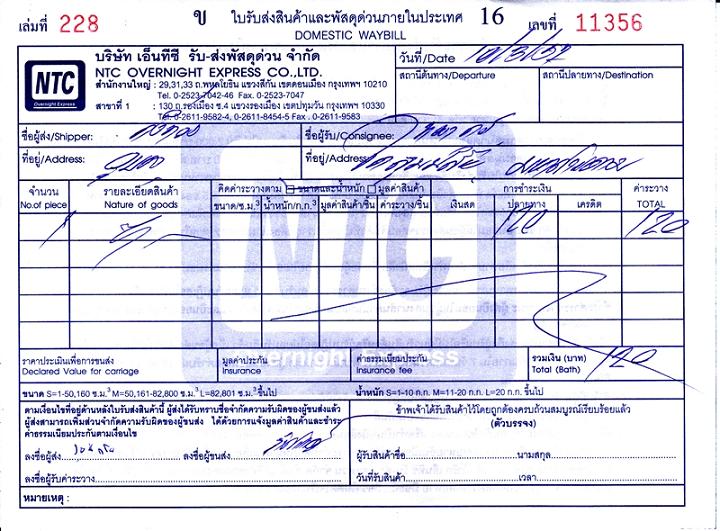 เล่มที่ 228 ข ใบรับส่งสินค้าและพัสดุด่วนภายในประเทศ 16 เลขที่ 11356
DOMESTIC WAYBILL
NTC
Overnight Express
บริษัท เอ็นทีซี รับ-ส่งพัสดุด่วน จำกัด
NTC OVERNIGHT EXPRESS CO.,LTD.
สำนักงานใหญ่ : 29,31,33 ถ.พหลโยธิน แขวงสีกัน เขตดอนเมือง กรุงเทพฯ 10210
Tel. 0-2523-7042-46 Fax. 0-2523-7047
สาขาที่ 1 : 130 ถ.รองเมือง ซ.4 แขวงรองเมือง เขตปทุมวัน กรุงเทพฯ 10330
Tel. 0-2611-9582-4, 0-2611-8454-5 Fax. 0-2611-9583
วันที่/Date
สถานีต้นทาง/Departure สถานีปลายทาง/Destination
ชื่อผู้ส่ง/Shipper: ชื่อผู้รับ/Consignee:
ที่อยู่/Address: ที่อยู่/Address:
จำนวน รายละเอียดสินค้า คิดค่าระวางตาม ขนาดและน้ำหนัก มูลค่าสินค้า การชำระเงิน ค่าระวาง
No.of piece Nature of goods ขนาด/ซ.ม.³ น้ำหนัก/ก.ก.³ มูลค่าสินค้า/ชิ้น ค่าระวาง/ชิ้น เงินสด ปลายทาง เครดิต TOTAL
1 120 120
NTC
ราคาประเมินเพื่อการขนส่ง มูลค่าประกัน ค่าธรรมเนียมประกัน รวมเงิน (บาท) 120
Declared Value for carriage Insurance Insurance fee Total (Bath)
ขนาด S=1-50,160 ซ.ม.³ M=50,161-82,800 ซ.ม.³ L=82,801 ซ.ม.³ขึ้นไป น้ำหนัก S=1-10 ก.ก. M=11-20 ก.ก. L=20 ก.ก. ขึ้นไป
ตามเงื่อนไขที่อยู่ด้านหลังใบรับส่งสินค้านี้ ผู้ส่งได้รับทราบข้อจำกัดความรับผิดของผู้ขนส่งแล้ว
ผู้ส่งสามารถเพิ่มส่วนจำกัดความรับผิดของผู้ขนส่ง ได้ด้วยการแจ้งมูลค่าสินค้าและชำระ
ค่าธรรมเนียมประกันตามเงื่อนไข
ลงชื่อผู้ส่ง ลงชื่อผู้ขนส่ง
ลงชื่อผู้รับค่าระวาง
ข้าพเจ้าได้รับสินค้าไว้โดยถูกต้องครบถ้วนสมบูรณ์เรียบร้อยแล้ว
(ตัวบรรจง)
ผู้รับสินค้าชื่อ นามสกุล
วันที่รับสินค้า เวลา
หมายเหตุ :